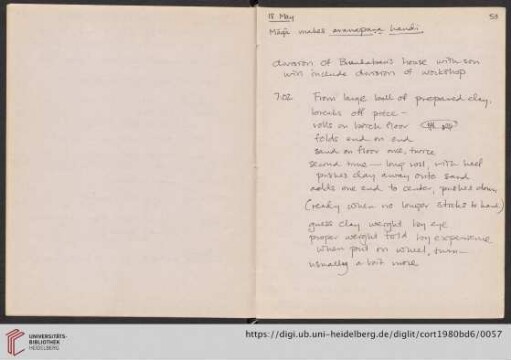 18 May 53
Māgā makes handi
division of house with son
will include division of workshop
7:02 From large ball of prepared clay,
breaks off piece –
rolls on brick floor
folds end on end
sand on floor once, twice
second time – long roll, with heel
pushes clay away onto sand
adds one end to center, pushes down
(ready when no longer sticks to hand)
guess clay weight by eye
proper weight told by experience
when put on wheel, turn –
usually a bit more
UNIVERSITÄTS-
BIBLIOTHEK
HEIDELBERG
https://digi.ub.uni-heidelberg.de/diglit/cort1980bd6/0057